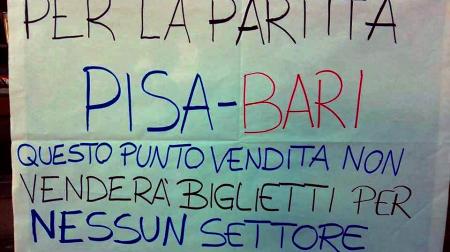 PER LA PARTITA
PISA-BARI
QUESTO PUNTO VENDITA NON
VENDERÀ BIGLIETTI PER
NESSUN SETTORE